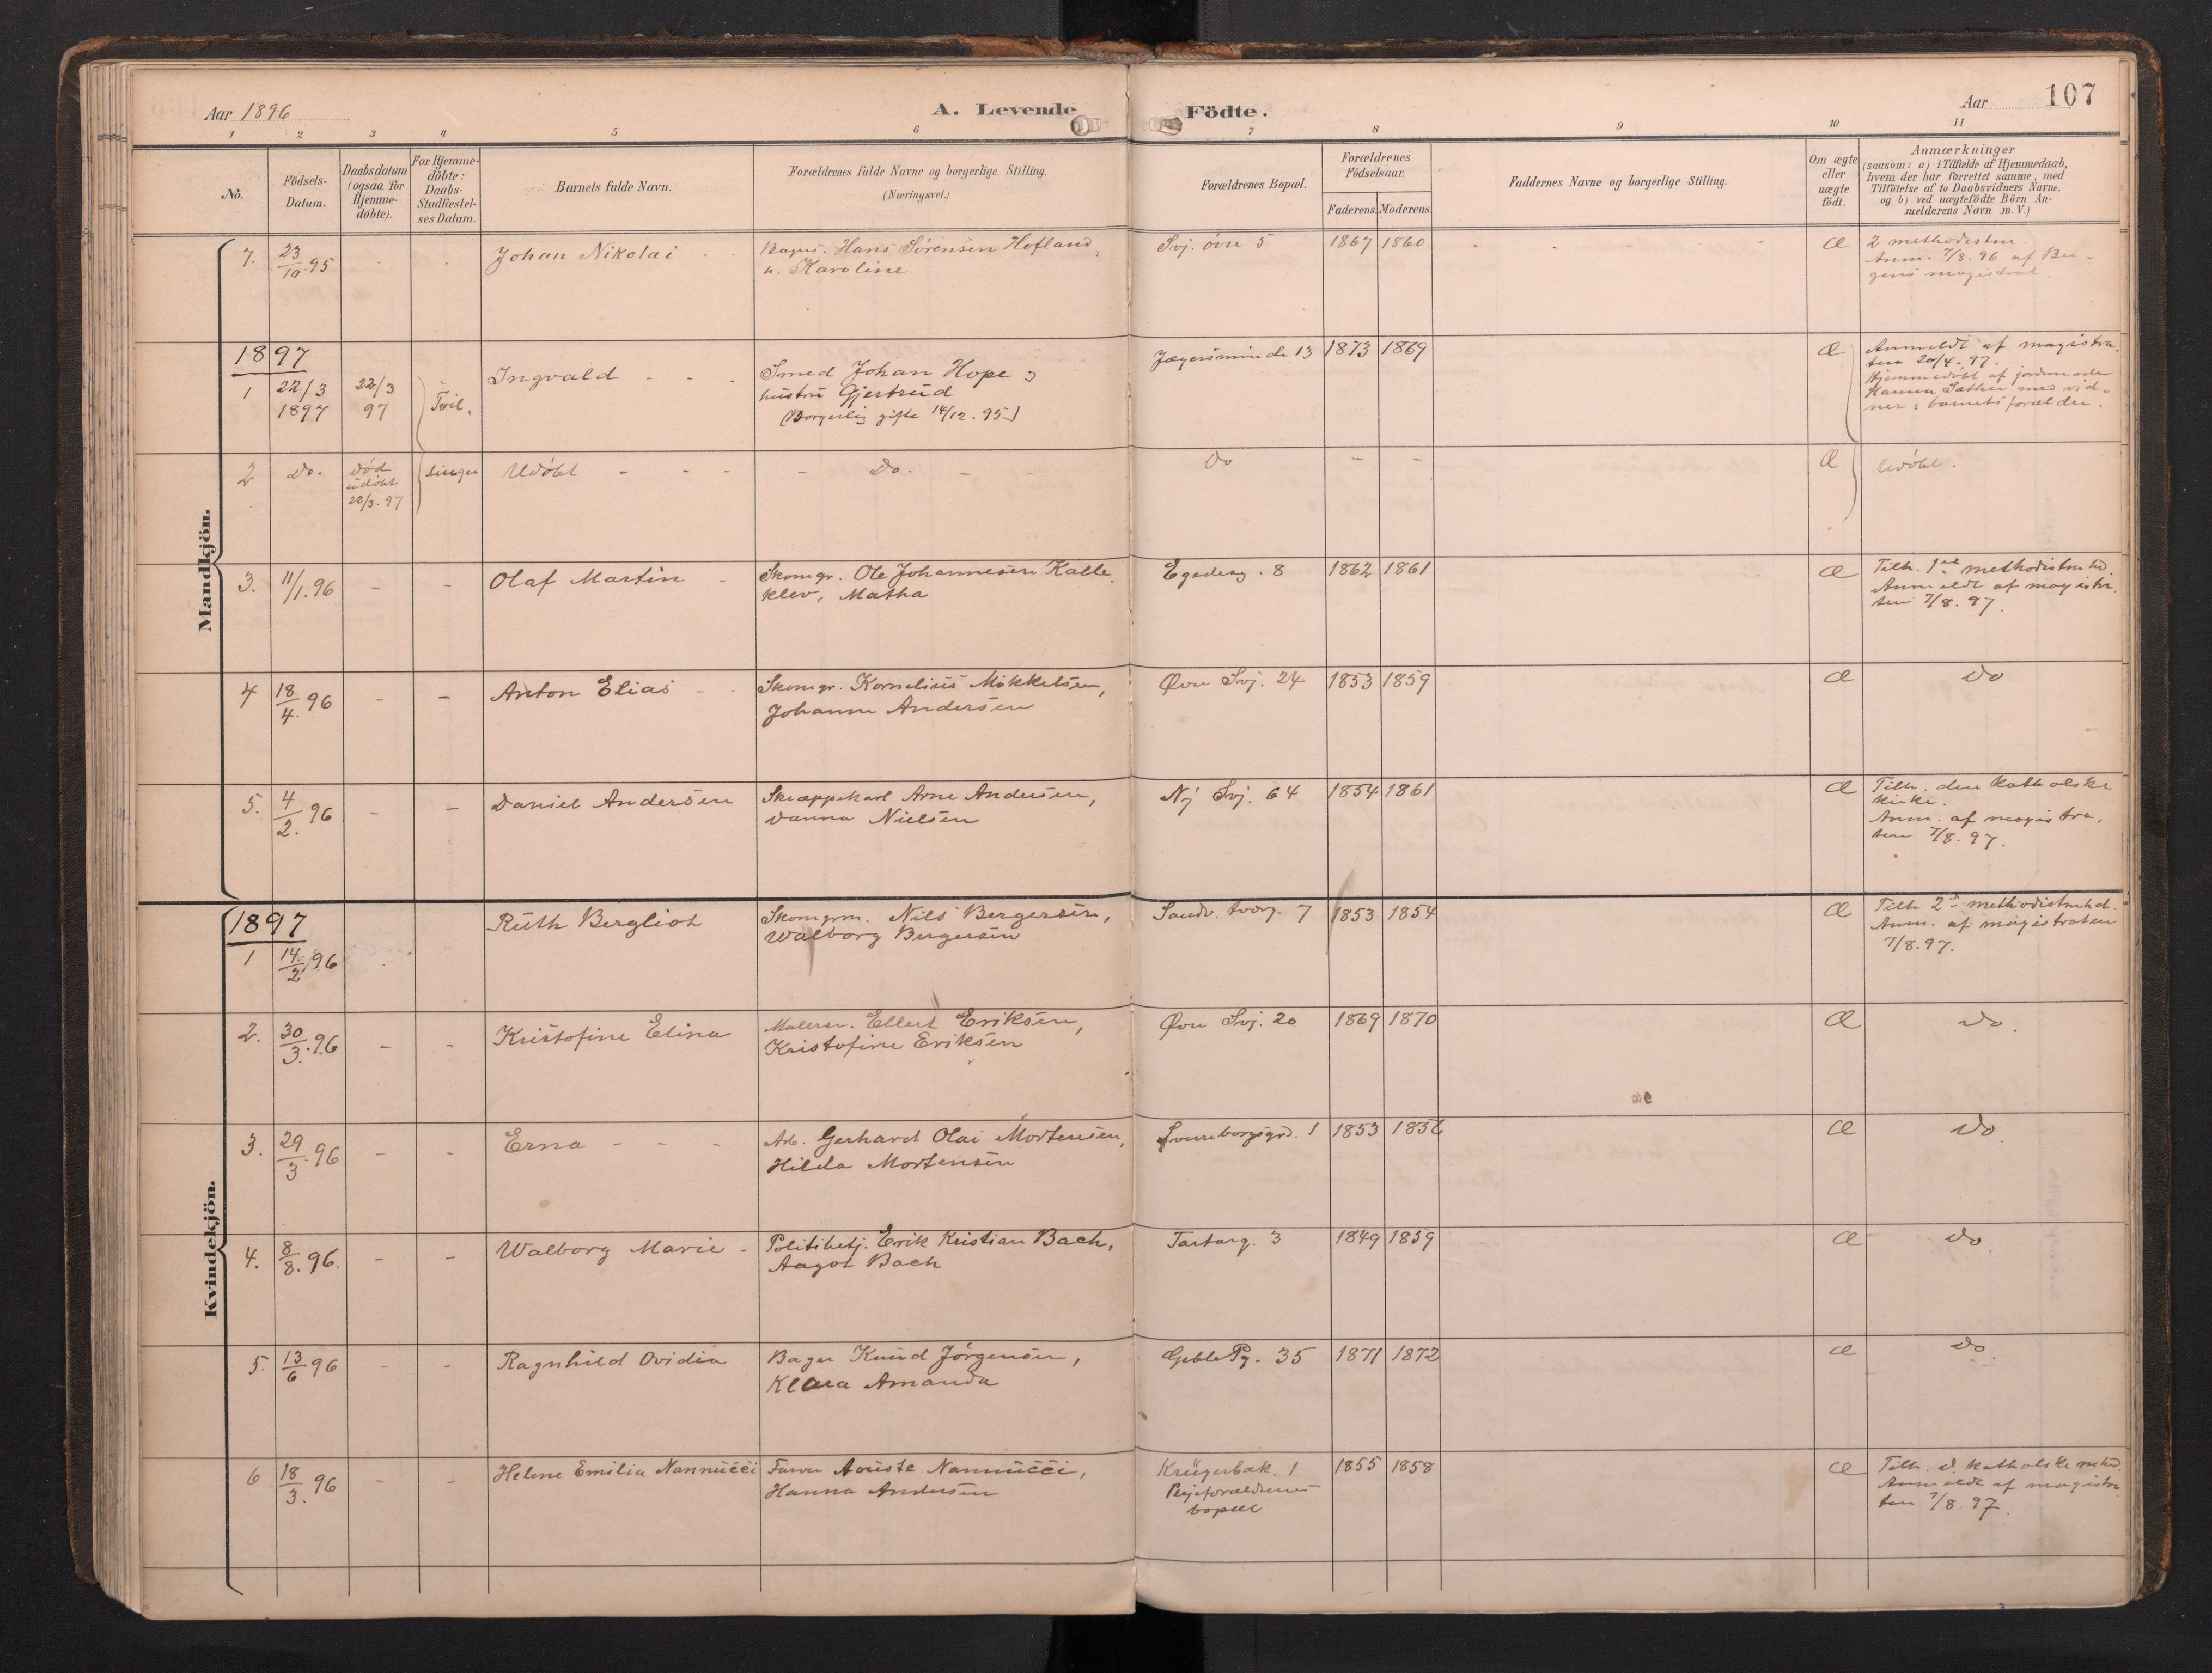 Aar 1896
A. Levende
Födte.
Aar
107
1 2 3 4 5 6 7 8 9 10 11
No.
Födsels-
Datum.
Daabsdatum
(ogsaa for
Hjemme-
döbte).
For Hjemme-
döbte:
Daabs-
Stadfæstel-
ses Datum.
Barnets fulde Navn.
Forældrenes fulde Navne og borgerlige Stilling.
(Næringsvei.)
Forældrenes Bopæl.
Forældrenes
Födselsaar.
Faderens. Moderens.
Faddernes Navne og borgerlige Stilling.
Om ægte
eller
uægte
födt.
Anmærkninger
(saasom: a) i Tilfælde af Hjemmedaab,
hvem der har forrettet samme, med
Tilföielse af to Daabsvidners Navne.
og b) ved uægtefödte Börn An-
melderens Navn m. V.)
Mandkjön.
7. 23/10.95 Johan Nikolai
Hans Sørensen Hofland,
h. Karoline
Svj. övre 5 1867 1860 Æ
2 methodistm.
Anm. 7/8.96 af Ber-
gens magistrat.
1897
1 22/3 1897
22/3 97
Tvil.
Ingvald - - -
Smed Johan Hope og
hustru Gjertrud
(Borgerlig gifte 14/12.95)
Jægersminde 13 1873 1869 Æ
Anmeldt af magistra-
ten 20/4.97.
Hjemmedöbt af jordmoder
Hanna Sæther med vid-
ner: barnets forældre.
2 Do.
Död
udöbt
22/3.97
linger
Udöbt - - - Do. - -
Do - - Æ Udöbt.
3. 11/1.96 - - Olaf Martin -
Skomgr. Ole Johannesen Kalle-
klev, Matha
Egedesg. 8 1862 1861 Æ
Tilh. 1ste methodistmhd.
Anmeldt af magistra-
ten 7/8.97.
4 18/4.96 - - Anton Elias -
Skomgr. Kornelius Mikkelsen,
Johanne Andersen
Øvre Svj. 24 1853 1859 Æ Do
5. 4/2.96 - - Daniel Andersen
Skræppekarl Arne Andersen,
Danna Nielsen
Ny Svj. 64 1854 1861 Æ
Tilh. den katholske
kirke.
Anm. af magistra-
ten 7/8.97.
Kvindekjön.
1897
1 14/2.96
Ruth Bergliot
Skomgrm. Nils Bergersen,
Walborg Bergersen
Sandv. torvg. 7 1853 1854 Æ
Tilh 2den methodistmhd.
Anm. af magistraten
7/8.97.
2. 30/3.96 - - Kristofine Elina
Malersv. Ellert Eriksen,
Kristofine Eriksen
Øvre Svj. 20 1869 1870 Æ Do.
3. 29/3.96 - - Erna - - -
Arb. Gerhard Olai Mortensen,
Hilda Mortensen
Sverreborgsgd. 1 1853 1856 Æ Do.
4. 8/8.96. - - Walborg Marie -
Politibetj. Erik Kristian Bach,
Aagot Bach
Tartarg. 3 1849 1859 Æ Do.
5. 13/6 96 - - Ragnhild Ovidia
Bager Knud Jørgensen,
Klara Amanda
Geble Pg. 35 1871 1872 Æ Do.
6 18/3.96 - - Helene Emilia Nannucci
Nannucci,
Hanna Andersen
Krügerbak. 1
Plejeforældrenes
bopæl
1855 1858 Æ
Tilh. d. katholske mhd.
Anmeldt af magistra-
ten 7/8.97.